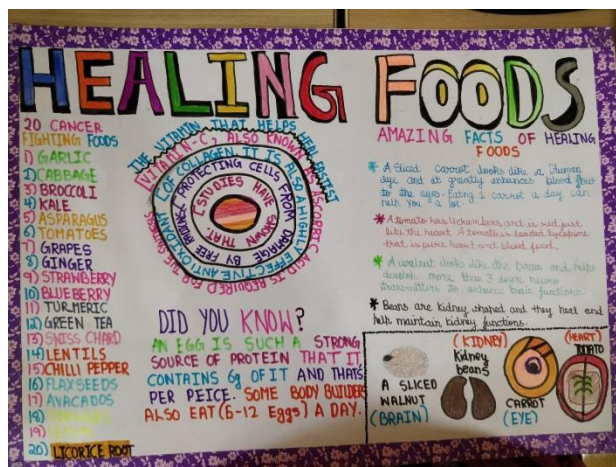 HEALING FOODS
20 CANCER
FIGHTING FOODS
1) GARLIC
2) CABBAGE
3) BROCCOLI
4) KALE
5) ASPARAGUS
6) TOMATOES
7) GRAPES
8) GINGER
9) STRAWBERRY
10) BLUEBERRY
11) TURMERIC
12) GREEN TEA
13) SWISS CHARD
14) LENTILS
15) CHILLI PEPPER
16) FLAXSEEDS
17) AVACADOS
18)
19)
20) LICORICE ROOT
THE VITAMIN THAT HELPS HEAL FASTEST
VITAMIN-C, ALSO KNOWN AS ASCORBIC ACID IS REQUIRED FOR THE SYNTHESIS
OF COLLAGEN. IT IS ALSO A HIGHLY EFFECTIVE ANTIOXIDANT
PROTECTING CELLS FROM DAMAGE BY FREE RADICALS
STUDIES HAVE SHOWN THAT
DID YOU KNOW?
AN EGG IS SUCH A STRONG
SOURCE OF PROTEIN THAT IT
CONTAINS 6g OF IT AND THATS
PER PEICE. SOME BODY BUILDERS
ALSO EAT (6-12 Eggs) A DAY.
AMAZING FACTS OF HEALING
FOODS
* A Sliced carrot looks like a Human
eye and it greatly enhances blood flow
to the eyes. Eating 1 carrot a day can
help you a lot.
* A tomato has 4 chambers and is red just
like the heart. A tomato is loaded lycopene
that is pure heart and blood food.
* A walnut looks like the brain and helps
develop more than 3 dozen neuro
transmitters to enhance brain functions.
* Beans are kidney shaped and they heal and
help maintain kidney functions.
A SLICED
WALNUT
(BRAIN)
(KIDNEY)
kidney
beans
CARROT
(EYE)
(HEART)
TOMATO